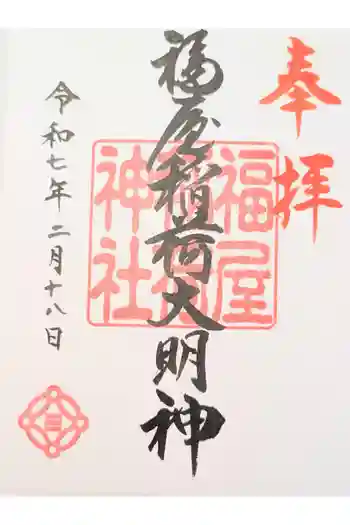 奉拝
福屋稲荷大明神
福屋稲荷神社
令和七年二月十八日